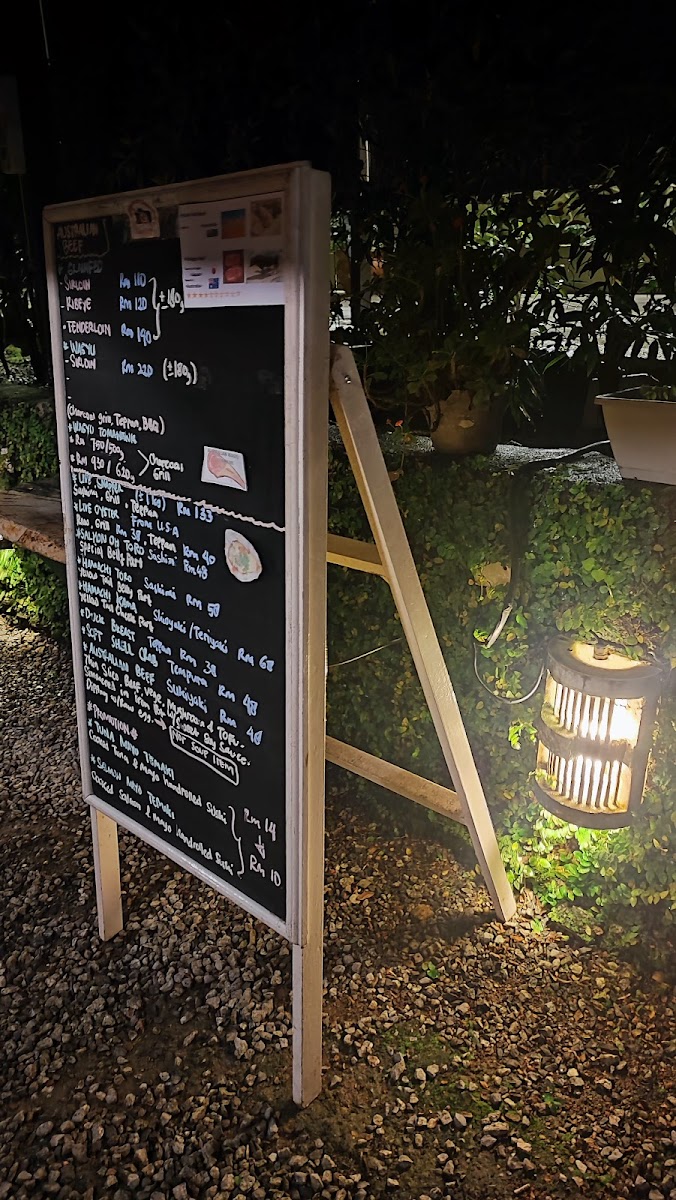 AUSTRALIAN
BEEF
SIRLOIN Rm 110
RIBEYE Rm 120 ±180g
TENDERLOIN Rm 190
WAGYU
SIRLOIN Rm 220 (±180g)
(Charcoal grill, Teppan, BBQ)
WAGYU TOMAHAWK
Rm 750/500g
Rm 930/620g > Charcoal Grill
LIVE (±1kg) Rm 133
Sashimi, Grill, Teppan
LIVE OYSTER From U.S.A
Raw, Grill Rm 38, Teppan Rm 40
SALMON OH TORO Sashimi Rm 48
Special Belly Part
HAMACHI TORO Sashimi Rm 58
Yellow Tail Belly Part
HAMACHI KAMA Shioyaki/Teriyaki Rm 68
Yellow Tail Part
DUCK BREAST Teppan Rm 38
SOFT SHELL CRAB Tempura Rm 48
AUSTRALIAN BEEF Sukiyaki Rm 48
Thin Slice Beef, Vege, Mushroom & Tofu.
Simmered in Iron Soy Sauce.
Dipping w/Raw egg. → NOT SOUP ITEM
*PROMOTION*
TUNA MAYO TEMAKI
Cooked Tuna & Mayo Handrolled Sushi Rm 14
SALMON MAYO TEMAKI ↓
Cooked Salmon & Mayo Handrolled Sushi Rm 10